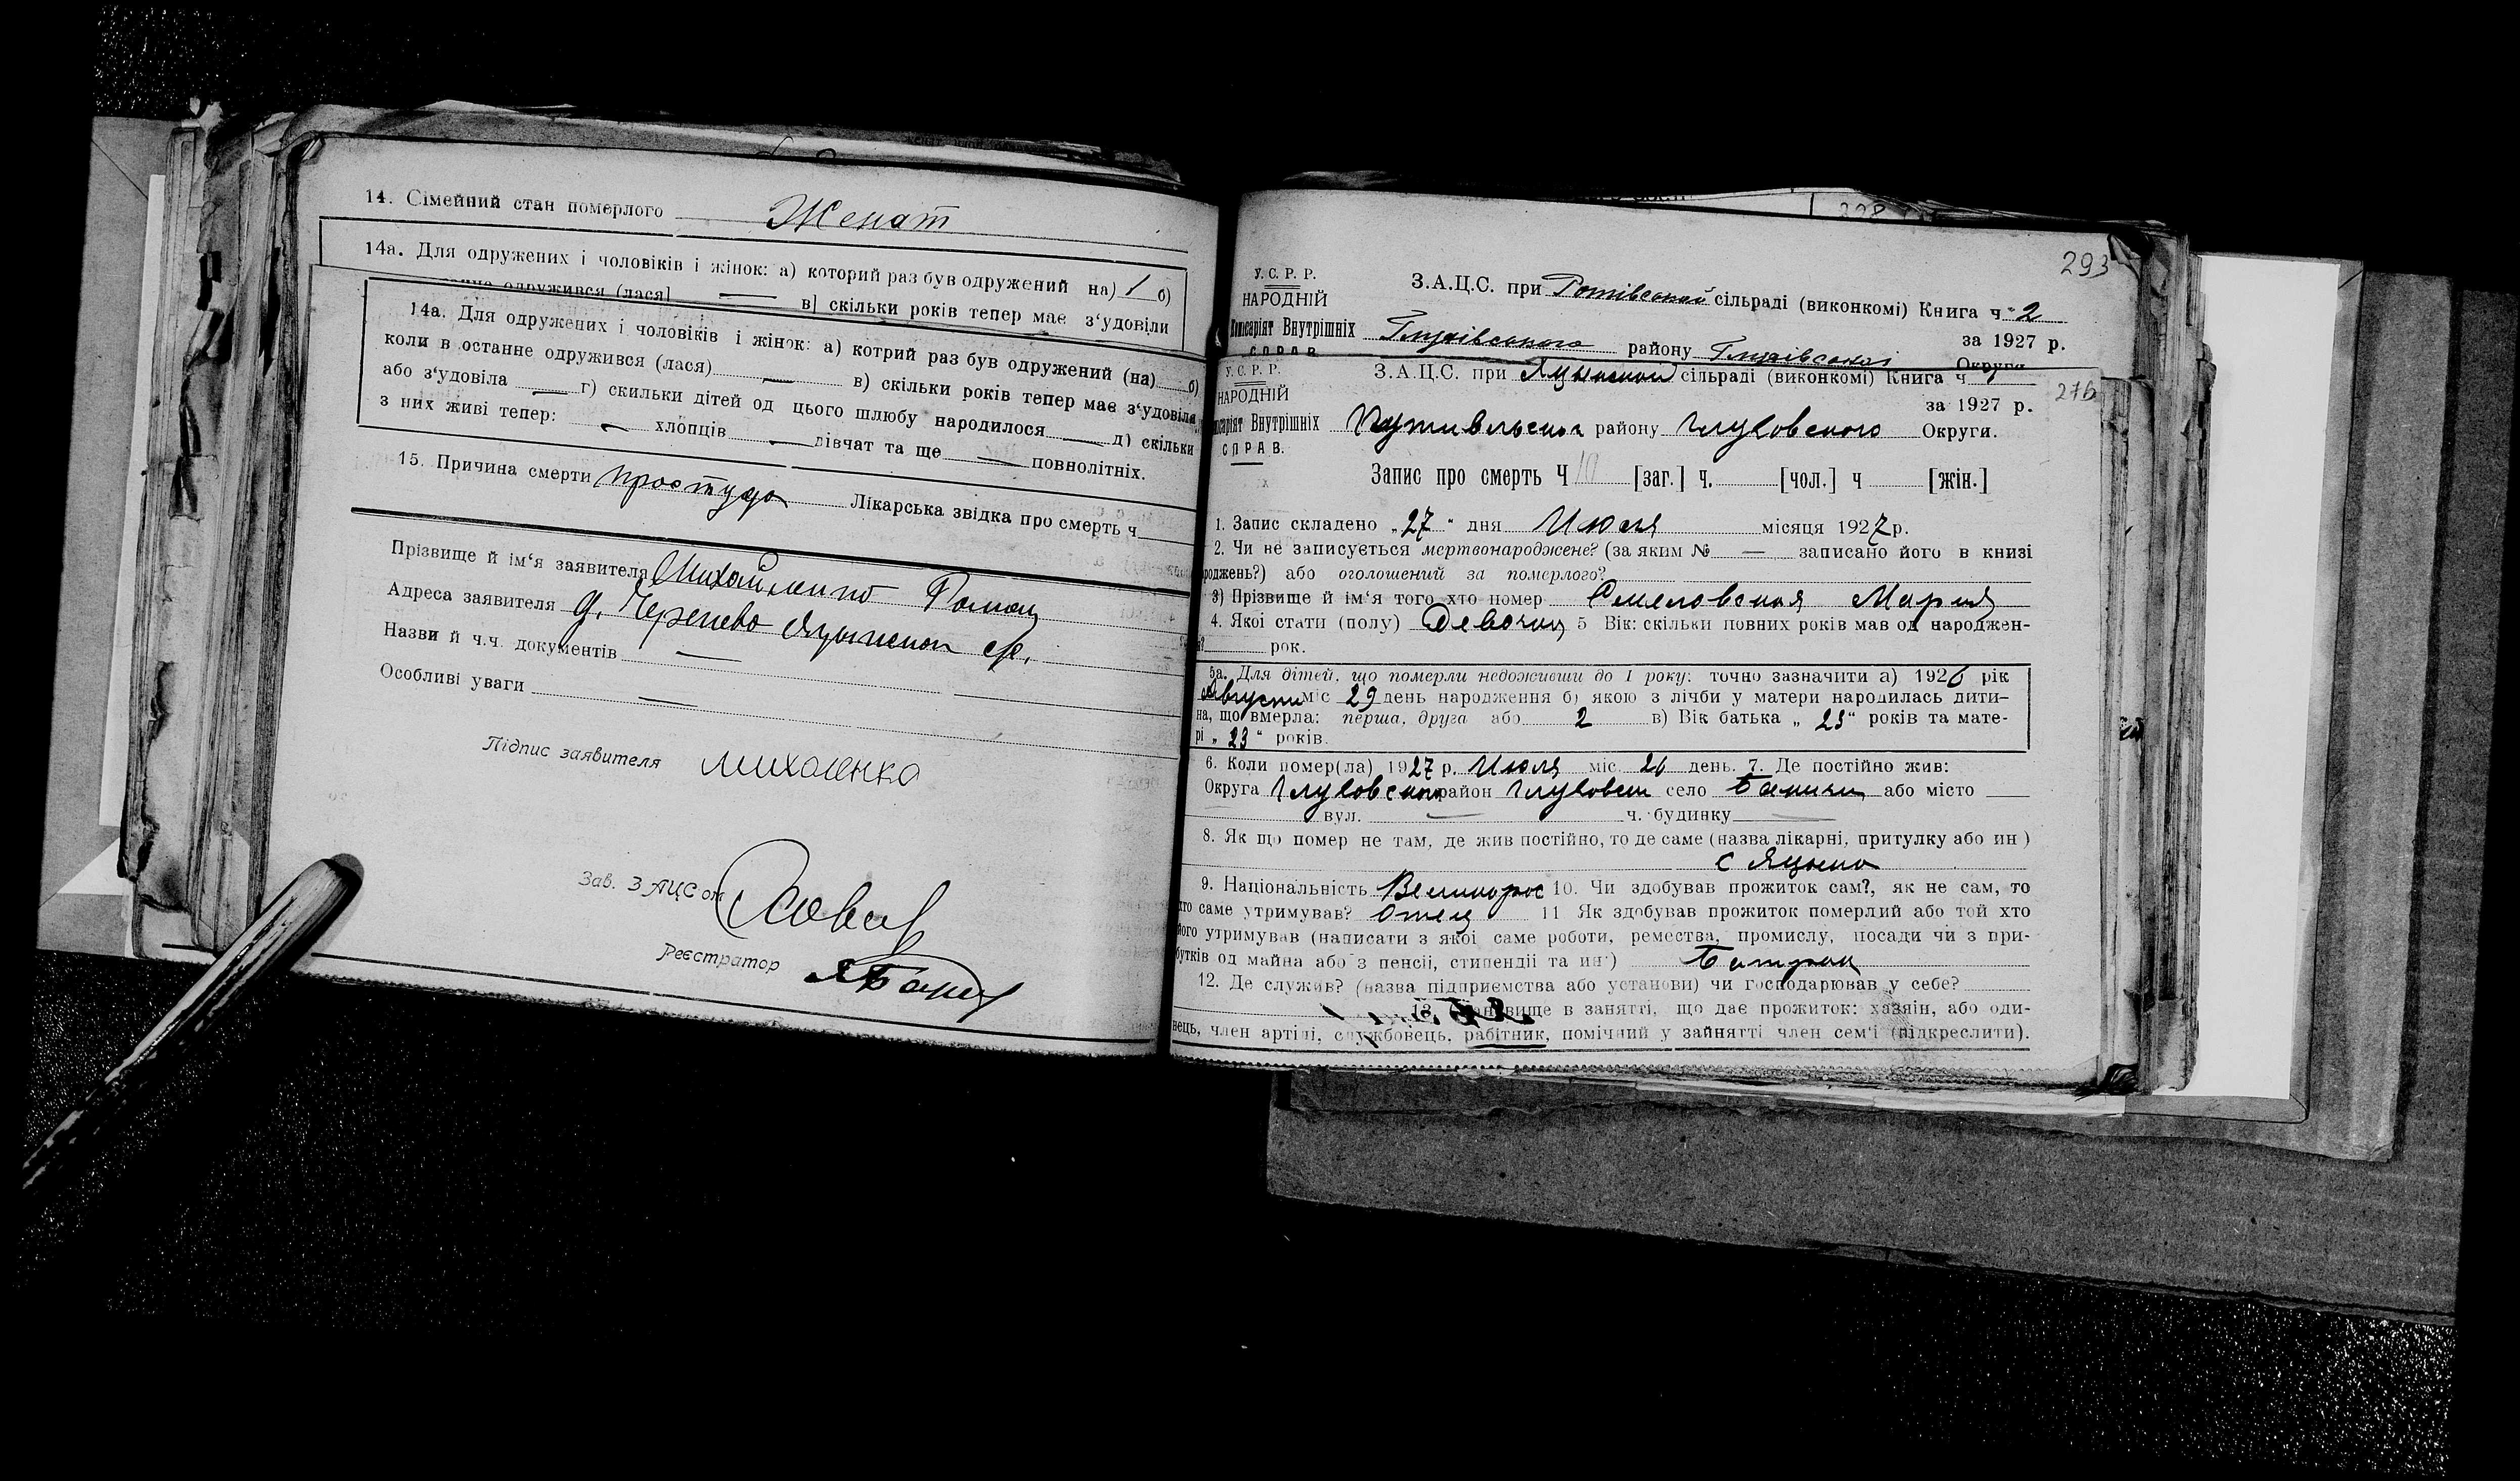 14. Сімейний стан померлого Женат
14а. Для одружених і чоловіків і жінок: а) которий раз був одружений на) 1 б)
одружився (лася) — в] скільки років тепер має з‘удовіли
14а. Для одружених і чоловіків і жінок: а) котрий раз був одружений (на) б)
коли в останне одружився (лася) — в) скільки років тепер має з‘удовіла
або з‘удовіла — г) скильки дітей од цього шлюбу народилося — д) скільки
з них живі тепер: — хлопців — дівчат та ще — повнолітніх.
15. Причина смерти простуда Лікарська звідка про смерть ч
Прізвище й ім‘я заявителя Роман
Адреса заявителя д.
Назви й ч.ч. документів —
Особливі уваги —
Підпис заявителя михаенко
Зав. ЗАЦСом
Реєстратор
293
У.С.Р.Р.
НАРОДНІЙ
Комісаріят Внутрішніх
СПРАВ
З.А.Ц.С. при сільраді (виконкомі) Книга ч. 2
за 1927 р.
району Округи
276
У.С.Р.Р.
НАРОДНІЙ
Внутрішніх
СПРАВ.
З.А.Ц.С. при сільраді (виконкомі) Книга ч
за 1927 р.
району Глуховского Округи.
Запис про смерть Ч 10 [заг.] ч. [чол.] ч [жін.]
1. Запис складено „27“ дня Июля місяця 1927 р.
2. Чи не записується мертвонароджене? (за яким № — записано його в книзі
роджень?) або оголошений за померлого?
3) Прізвище й ім‘я того хто помер Смеловская Мария
4. Якої стати (полу) Девочка 5 Вік: скільки повних років мав од народжен-
рок.
5а. Для дітей, що померли недоживши до 1 року: точно зазначити а) 1926 рік
Августа міс 29 день народження б) якою з лічби у матери народилась дити-
на, що вмерла: перша, друга або 2 в) Вік батька „23“ років та мате-
рі „23“ років.
6. Коли помер(ла) 1927 р. Июля міс. 26 день. 7. Де постійно жив:
Округа Глуховского район Глуховск село Баничи або місто —
вул. — ч. будинку —
8. Як що помер не там, де жив постійно, то де саме (назва лікарні, притулку або ин)
с Яцыно
9. Національність Великорос 10. Чи здобував прожиток сам?, як не сам, то
хто саме утримував? Отец 11 Як здобував прожиток померлий або той хто
його утримував (написати з якої саме роботи, ремества, промислу, посади чи з при-
бутків од майна або з пенсії, стипендії та ин) Батрак
12. Де служив? (назва підприємства або установи) чи господарював у себе?
13. Становище в занятті, що дає прожиток: хазяїн, або оди-
нець, член артілі, службовець, рабітник, помічний у зайнятті член сем‘ї (підкреслити).